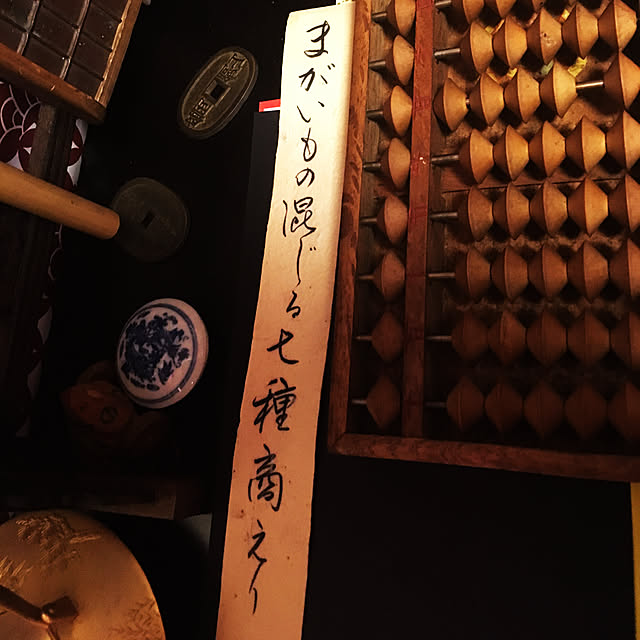 まがいもの混じる七種商えり